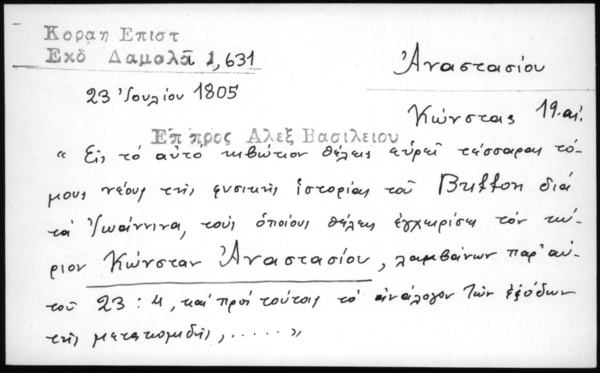 Κοραη Επιστ
Εκδ Δαμαλᾶ 1,631
Ἀναστασίου
23 Ἰουλίου 1805
Κώνστας 19.αἰ.
Επ προς Αλεξ Βασιλειου
“ Εἰς τό αὐτό κιβώτιον θέλεις εὑρεῖ τέσσαρας τό-
μους νέους τῆς φυσικῆς ἱστορίας τοῦ Buffon διά
τά Ἰωάννινα, τούς ὁποίους θέλεις ἐγχειρίσει τόν κύ-
ριον Κώνσταν Ἀναστασίου, λαμβάνων παρ' αὐ-
τοῦ 23 : 4, καί πρός τούτοις τό ἀνάλογον τῶν ἐξόδων
τῆς μετακομιδῆς, ..... ”